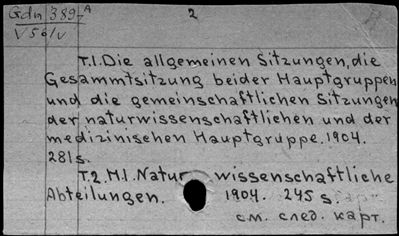 Gdn 389-A 2
V 56/v
T.1. Die allgemeinen Sitzungen, die
Gesammtsitzung beider Hauptgruppen
und die gemeinschaftlichen Sitzungen
der naturwissenschaftlichen und der
medizinischen Hauptgruppe. 1904.
281 s.
T.2. H.1. Naturwissenschaftliche
Abteilungen. 1904. 245 s.
см. след. карт.